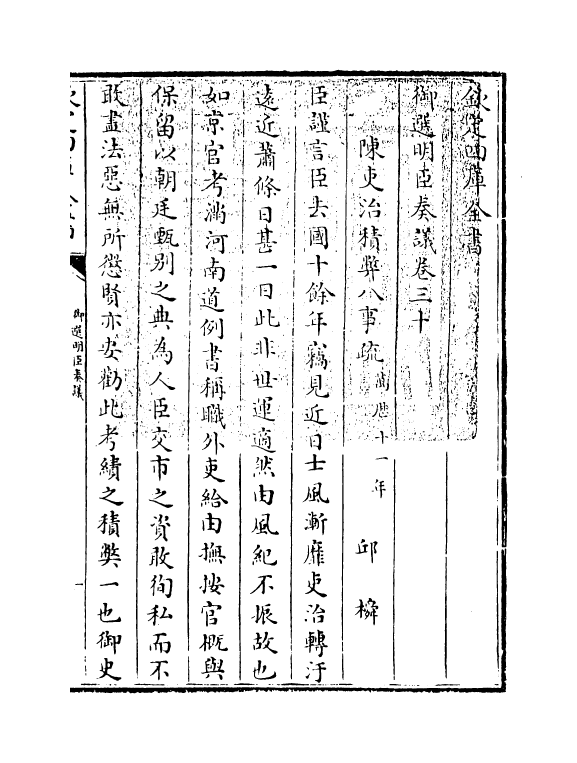 欽定四庫全書
御選明臣奏議卷三十
陳吏治積弊八事疏萬歷十一年 邱橓
臣謹言臣去國十餘年竊見近日士風漸靡吏治轉汙
遠近蕭條日甚一日此非世運適然由風紀不振故也
如京官考滿河南道例書稱職外吏給由撫按官概與
保留以朝廷甄別之典為人臣交市之資敢徇私而不
敢盡法惡無所懲賢亦安勸此考績之積弊一也御史
御選明臣奏議
一